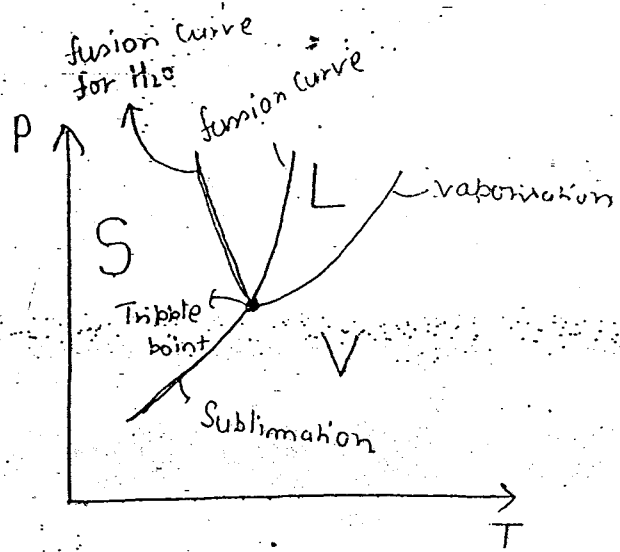 fusion curve
for H₂O
fussion curve
P
L
vaporisation
S
Tripple
point
V
Sublimation
T